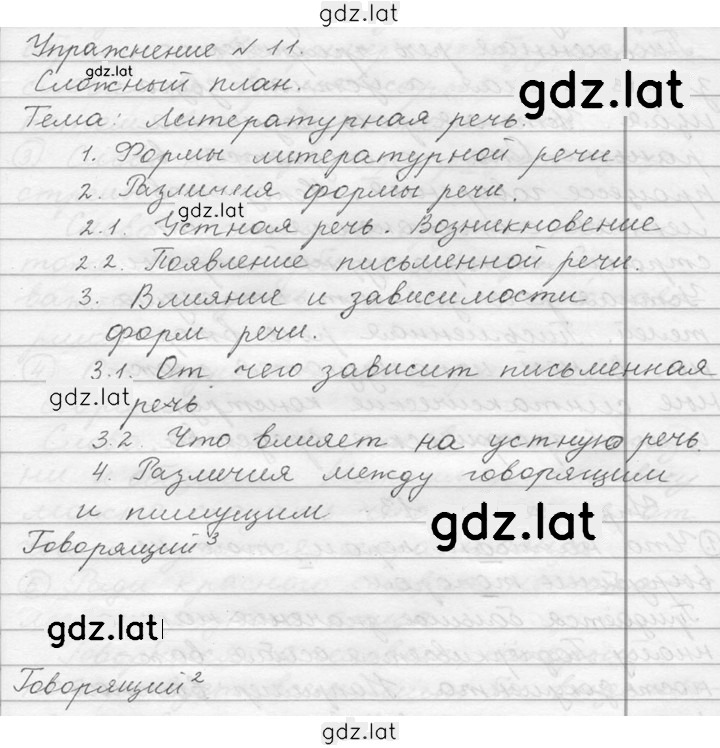 gdz.lat
Упражнение № 11.
gdz.lat
Сложный план.
gdz.lat
Тема: Литературная речь.
1. Формы литературной речи
2. Различия формы речи.
gdz.lat
2.1. Устная речь. Возникновение
2.2. Появление письменной речи.
3. Влияние и зависимости
форм речи.
3.1. От чего зависит письменная
gdz.lat
речь.
3.2. Что влияет на устную речь.
4. Различия между говорящим
и пишущим
gdz.lat
Говорящий³
gdz.lat
Говорящий²
gdz.lat